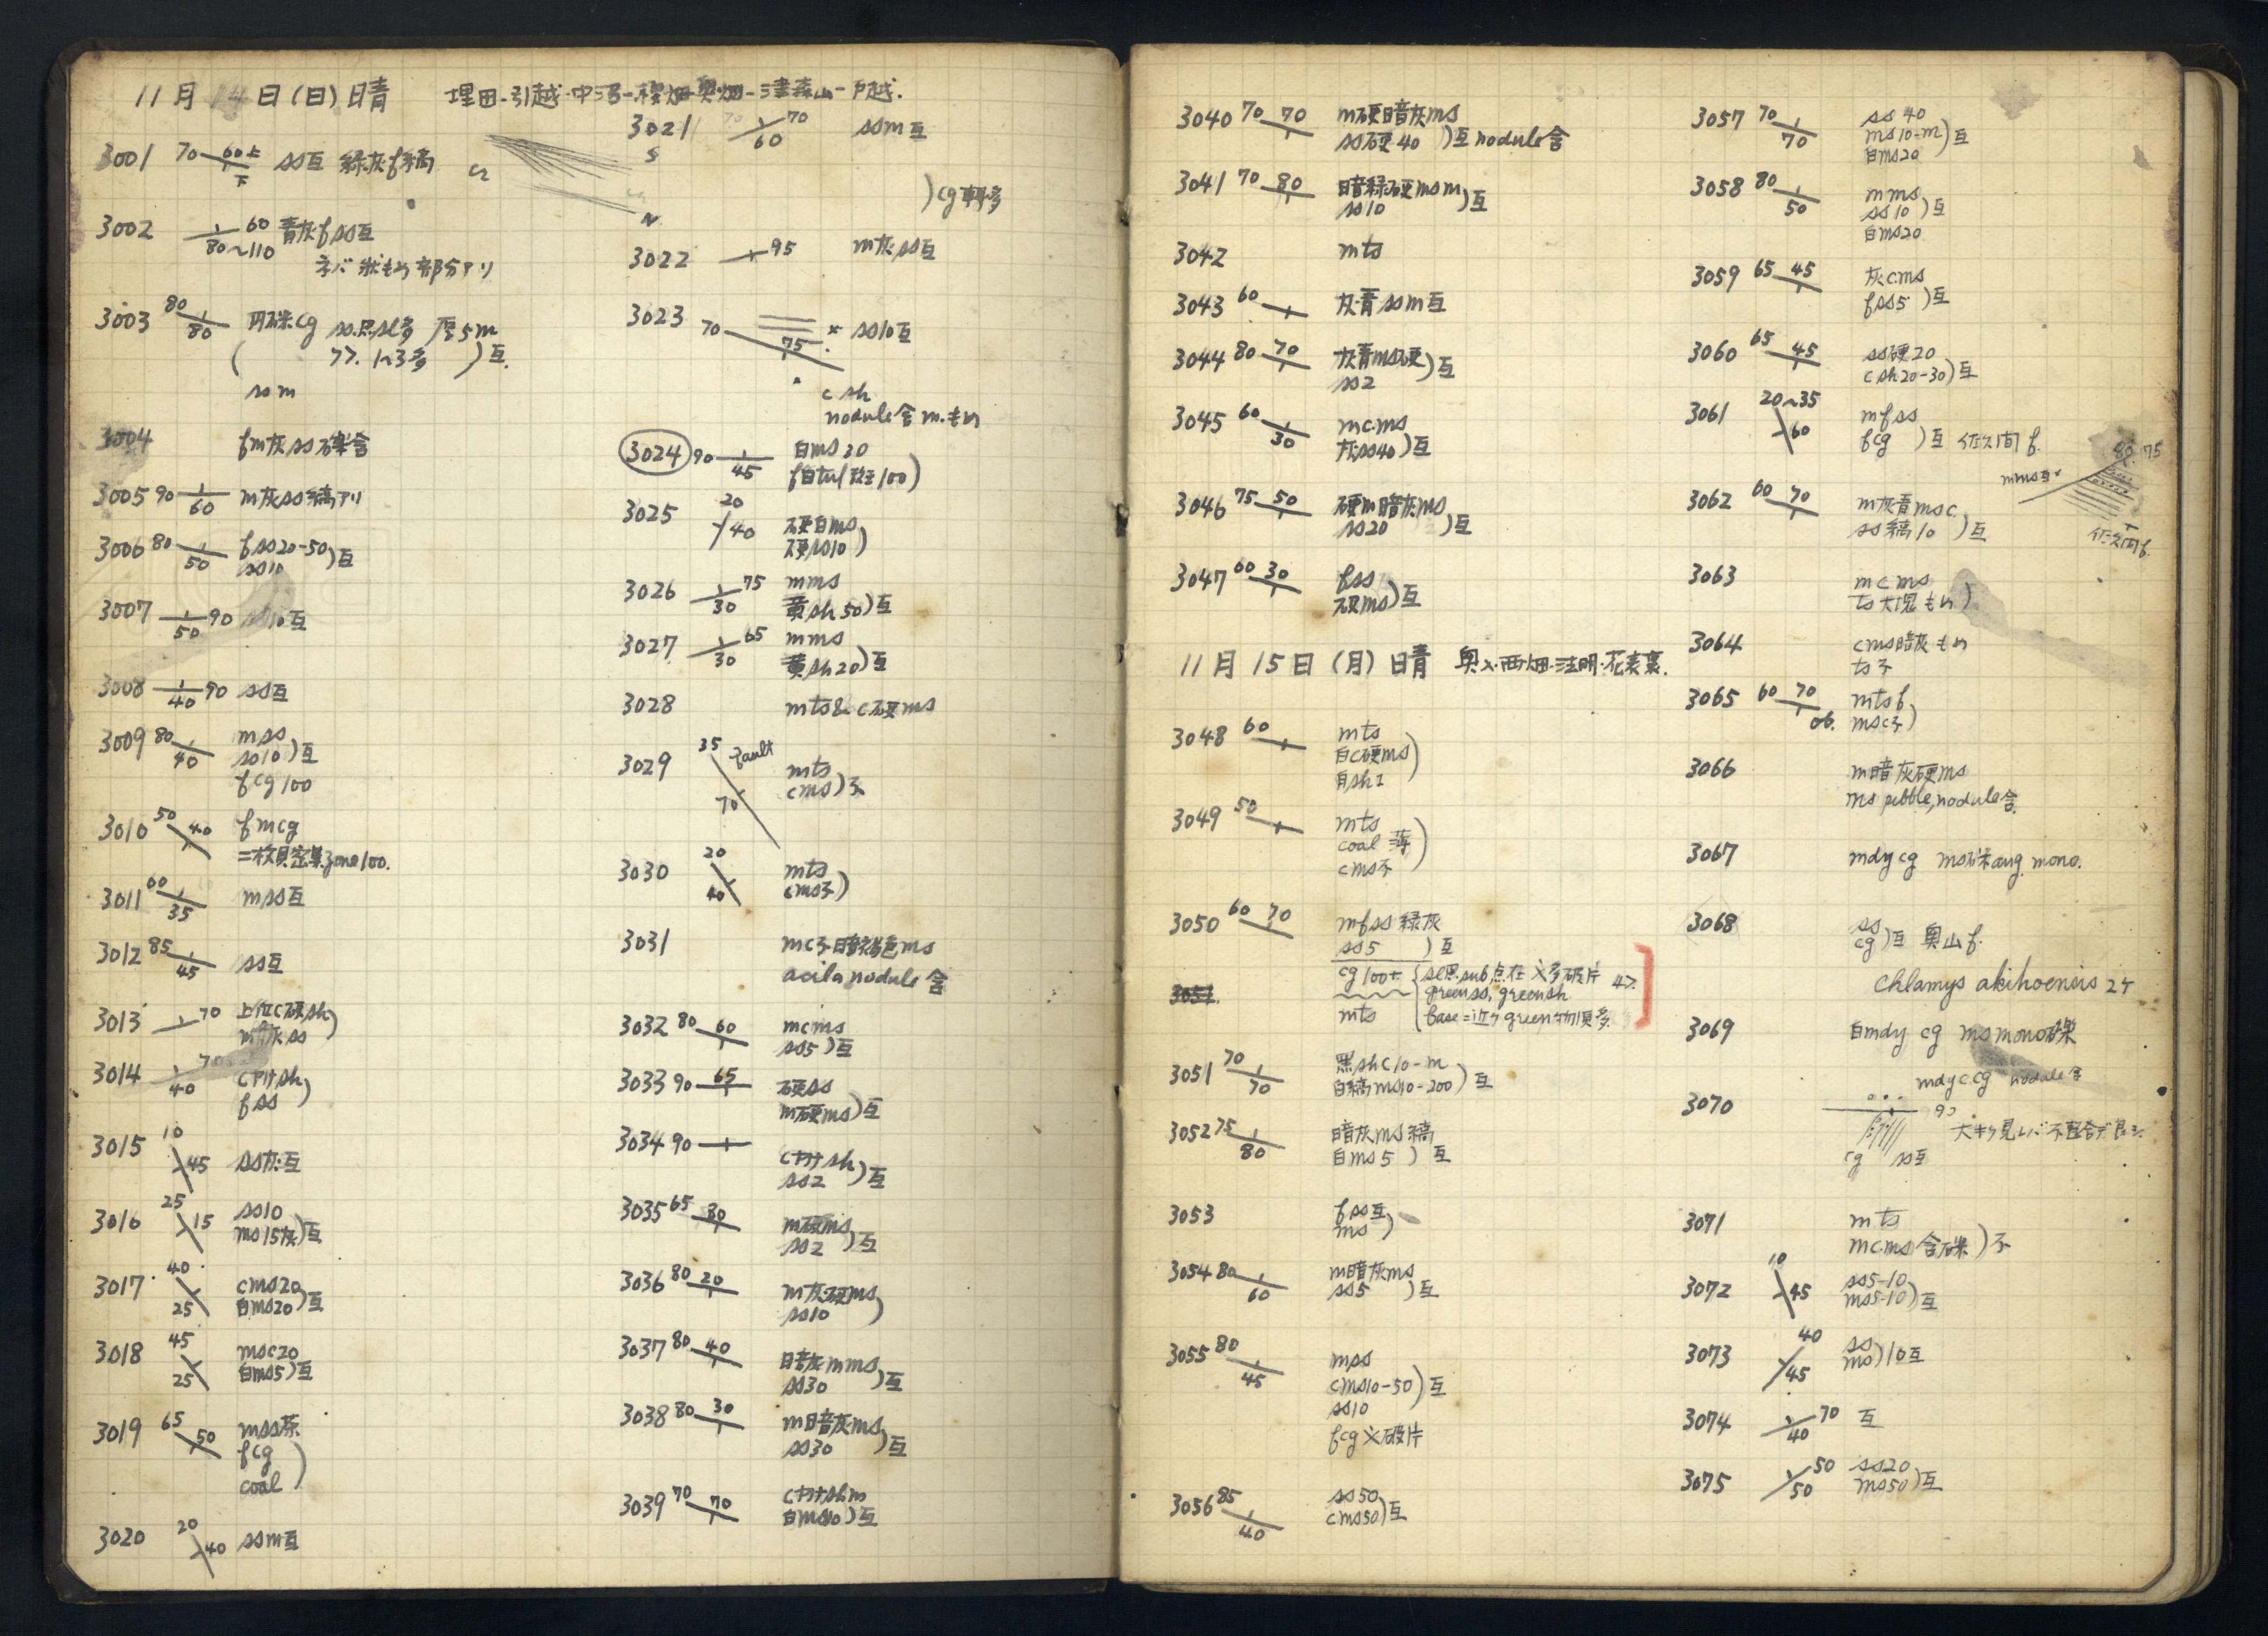 11月14日(日)晴 埋田-引越-中沼-櫻畑-奥畑-津森山-戸越.
3001 70 60 上 下 ss互 緑灰f縞
3002 60 80~110 青灰fss互
部分アリ
3003 80 80 円礫cg ss.黒sl多 厚5m
77. 1~3多 )互.
ssm
3004 fm灰ss礫含
3005 90 60 m灰ss縞アリ
3006 80 50 fss20-50
ss10 )互
3007 50 90 ss10互
3008 40 90 ss互
3009 80 40 mss
ss10 )互
fcg100
3010 50 40 fmcg
二枚貝密集zone100.
3011 60 35 mss互
3012 85 45 ss互
3013 70 上位c硬sh
m灰ss )
3014 70 40 c sh
fss )
3015 10 45 ss灰互
3016 25 15 ss10
ms15灰 )互
3017 40 25 cms20
白ms20 )互
3018 45 25 msc20
白ms5 )互
3019 65 50 mss茶
fcg
coal )
3020 20 40 ssm互
3021 70 60 ssm互
S
N
)cg
3022 95 m灰ss互
3023 70 75 ss10互
csh
nodule含m.
3024 90 45 白ms30
f白tuf 100)
3025 20 40 硬白ms
硬ss10 )
3026 75 30 mms
黄sh50 )互
3027 65 30 mms
黄sh20 )互
3028 mts & c硬ms
3029 35 fault 70 mts
cms )不
3030 20 40 mts
cms不 )
3031 mc不暗褐色ms
acila nodule含
3032 80 60 mcms
ss5 )互
3033 90 65 硬ss
m硬ms )互
3034 90 c sh
ss2 )互
3035 65 80 m硬ms
ss2 )互
3036 80 20 m灰硬ms
ss10 )
3037 80 40 暗灰mms
ss30 )互
3038 80 30 m暗灰ms
ss30 )互
3039 70 70 c shm
白ms10 )互
3040 70 70 m硬暗灰ms
ss硬40 )互 nodule含
3041 70 80 暗緑硬msm
ss10 )互
3042 mts
3043 60 灰青ssm互
3044 80 70 灰青ms硬
ss2 )互
3045 60 30 mcms
灰ss40 )互
3046 75 50 硬m暗灰ms
ss20 )互
3047 60 30 fss
硬ms )互
11月15日(月)晴 奥 西畑 法明 花表裏.
3048 60 mts
白c硬ms
白sh2 )
3049 50 mts
coal薄
cms不 )
3050 60 70 mfss緑灰
ss5 )互
3051 cg100± sl黒.sub点在 多破片 47.
greenss, greensh
mts base=近ク green物頃多.
3051 70 70 黒shc10-m
白縞ms10-200 )互
3052 75 80 暗灰ms縞
白ms5 )互
3053 fss互
ms )
3054 80 60 m暗灰ms
ss5 )互
3055 80 45 mss
cms10-50
ss10 )互
fcg 破片
3056 85 40 ss50
cms50 )互
3057 70 70 ss40
ms10-m )互
白ms20
3058 80 50 mms
ss10 )互
白ms20
3059 65 45 灰cms
fss5 )互
3060 65 45 ss硬20
csh20-30 )互
3061 20~35 60 mfss
fcg )互 佐久間f.
75
mms互
佐久間f.
3062 60 70 m灰青msc
ss縞10 )互
3063 mcms
ts大塊 )
3064 cms暗灰
ts不
3065 60 70 ob. mtsf
msc不 )
3066 m暗灰硬ms
ms pebble, nodule含.
3067 mdycg ms礫ang. mono.
3068 ss
cg )互 奥山f.
Chlamys akihoensis 2ケ
3069 白mdy cg ms mono礫
mdyccg nodule含
3070 90 大キク見レバ不整合デ良シ
cg ss互
3071 mts
mcms含礫 )不
3072 10 45 ss5-10
ms5-10 )互
3073 40 45 ss
ms )10互
3074 70 40 互
3075 50 50 ss20
ms50 )互